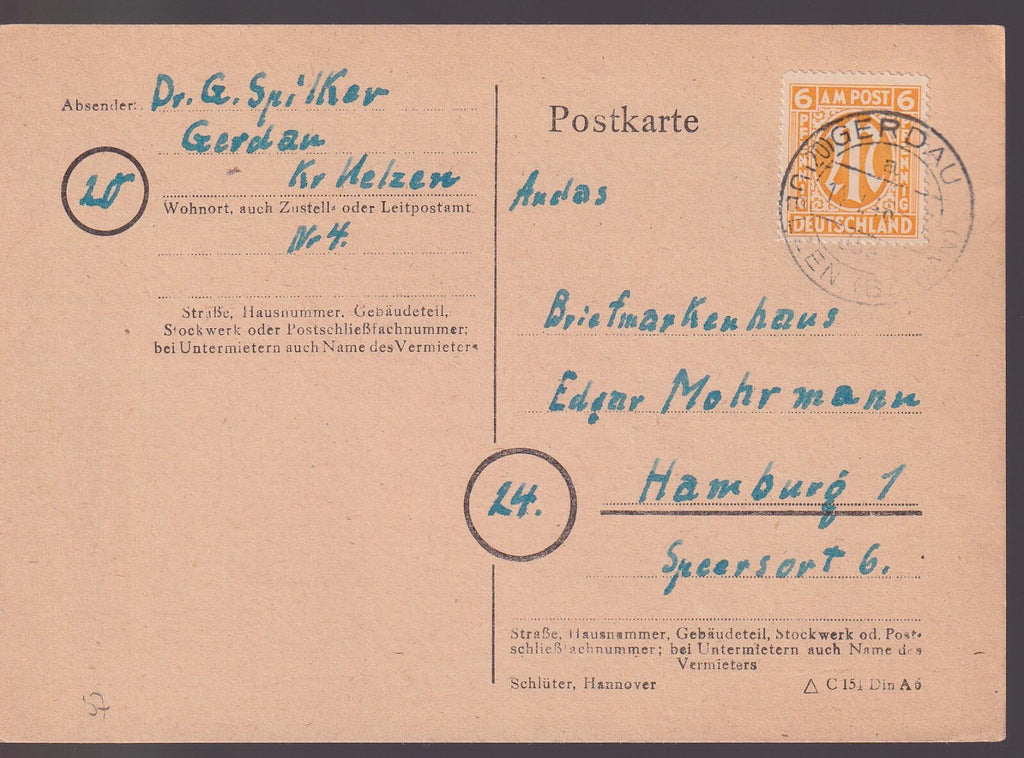 Absender: Dr. G. Spilker
Gerdau
Kr Uelzen
20
Wohnort, auch Zustell- oder Leitpostamt
Nr 4.
Straße, Hausnummer, Gebäudeteil,
Stockwerk oder Postschließfachnummer;
bei Untermietern auch Name des Vermieters
Postkarte
6 AM POST 6
PFENNIG
DEUTSCHLAND
GERDAU
a
An das
Briefmarkenhaus
Edgar Mohrmann
24.
Hamburg 1
Speersort 6.
Straße, Hausnummer, Gebäudeteil, Stockwerk od. Post-
schließfachnummer; bei Untermietern auch Name des
Vermieters
Schlüter, Hannover
C 154 Din A 6
57